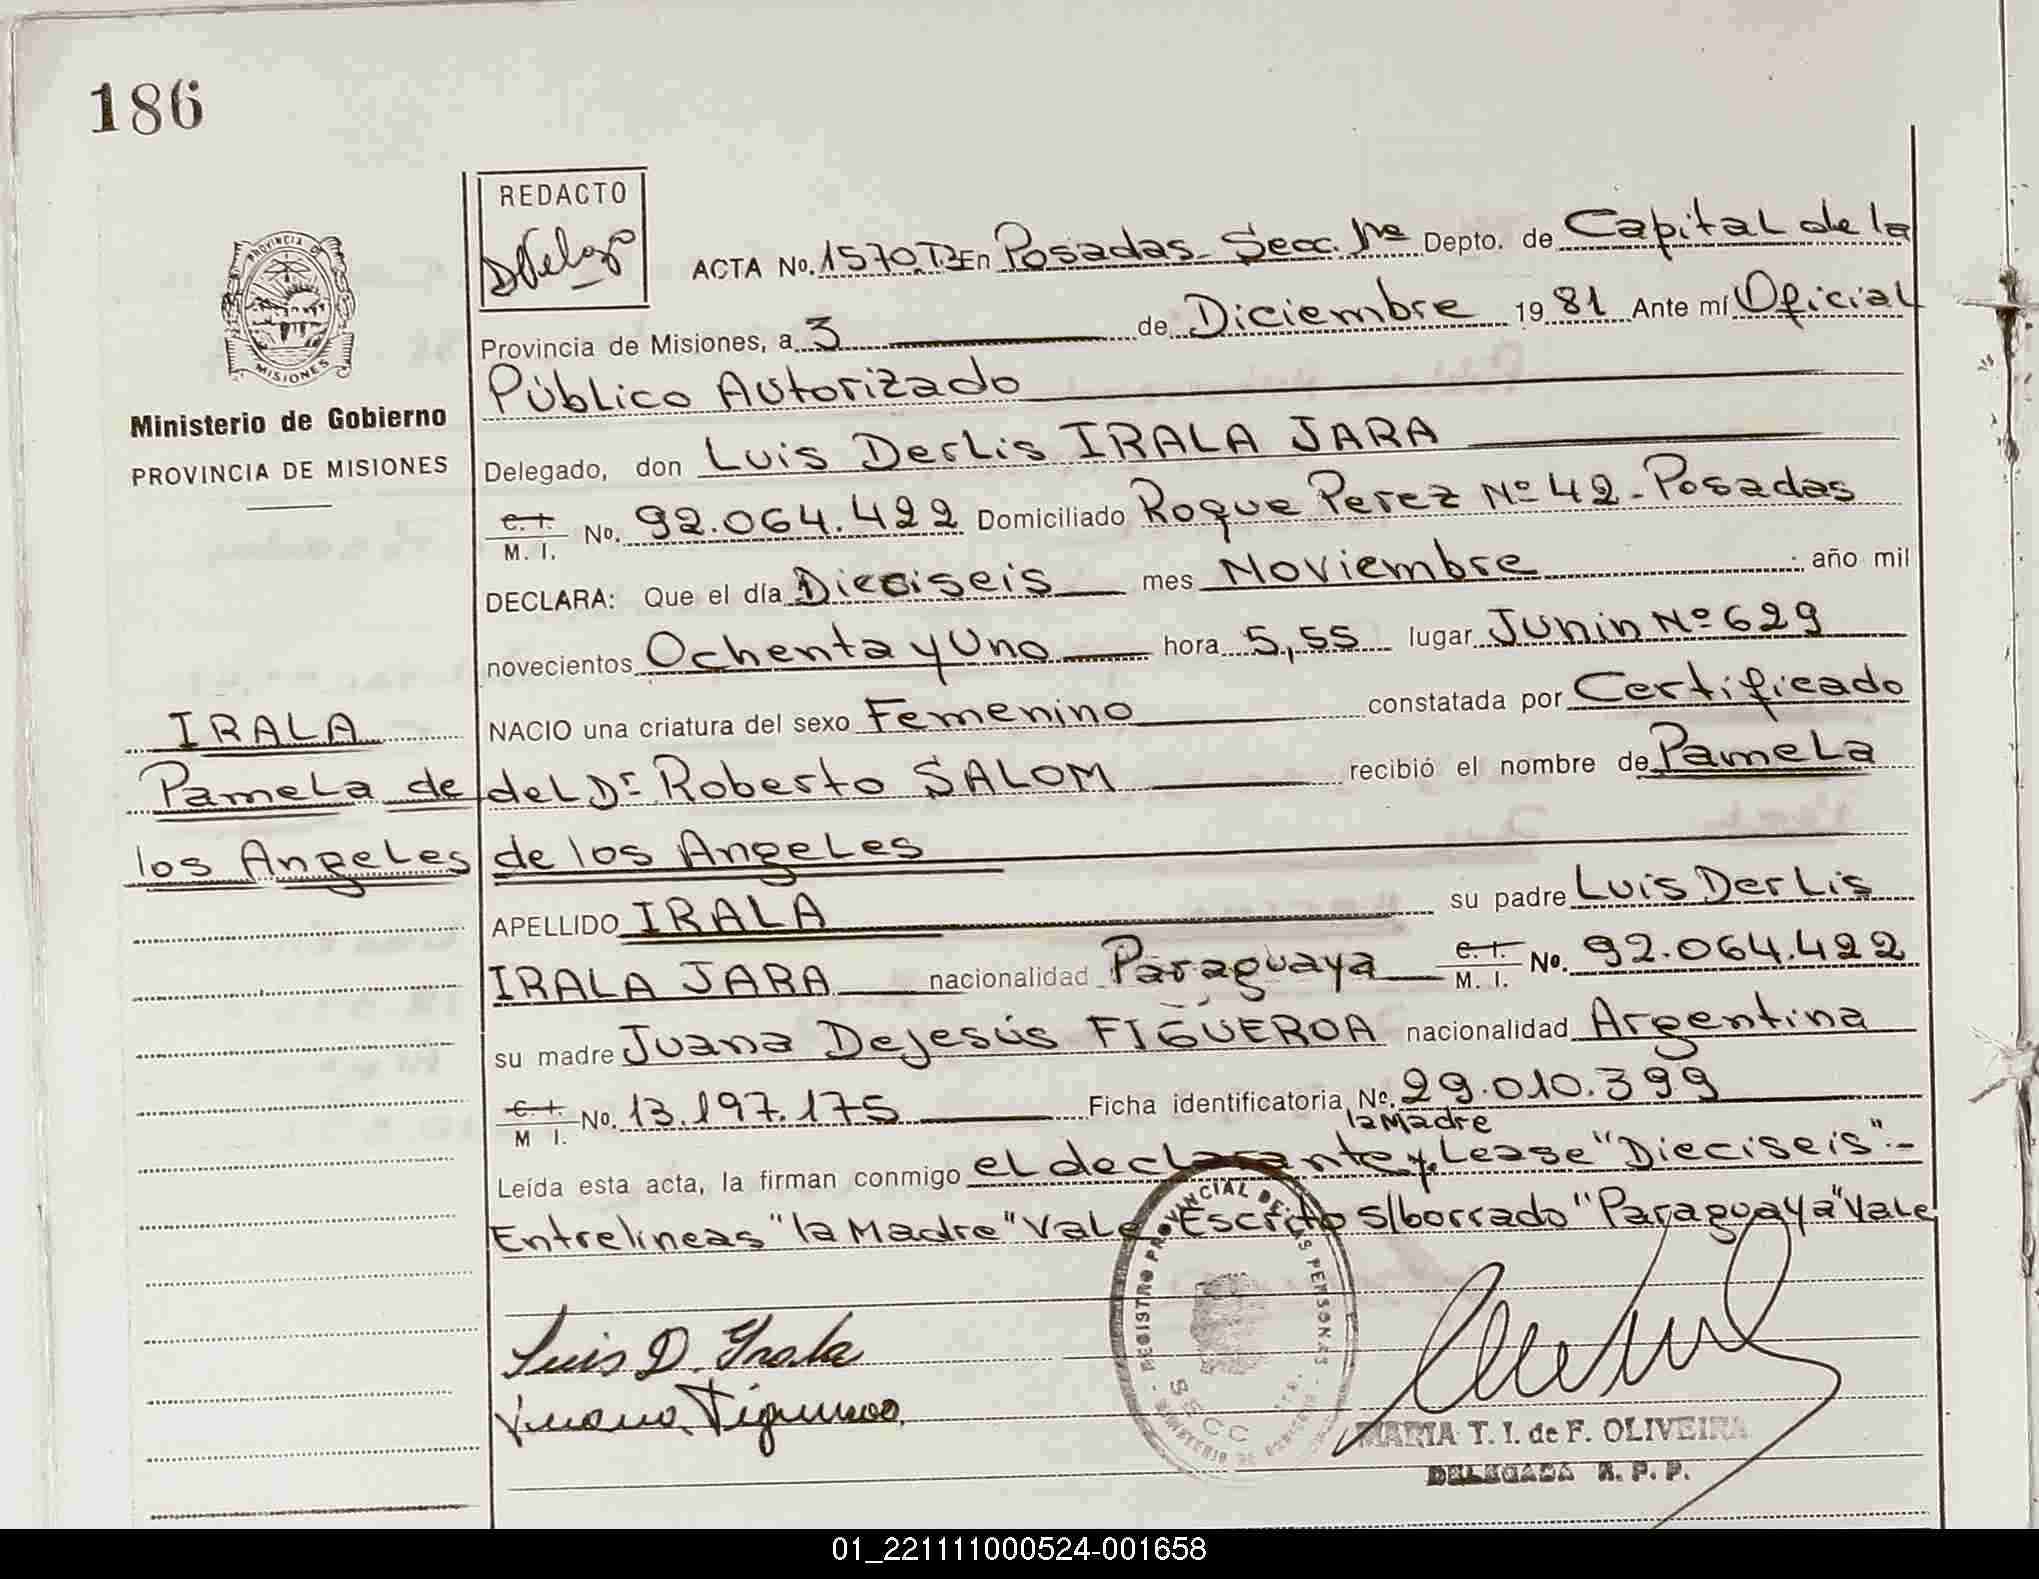 186
REDACTO
PROVINCIA DE
MISIONES
Ministerio de Gobierno
PROVINCIA DE MISIONES
ACTA No. 1570 En Posadas - Secc. 1ra Depto. de Capital de la
Provincia de Misiones, a 3 de Diciembre 1981 Ante mí Oficial
Público Autorizado
Delegado, don Luis Derlis IRALA JARA
C. I.
M. I. No. 92.064.422 Domiciliado Roque Perez Nº 42 - Posadas
DECLARA: Que el día Dieciseis mes Noviembre año mil
novecientos Ochenta y Uno hora 5,55 lugar Junin Nº 629
IRALA
NACIO una criatura del sexo Femenino constatada por Certificado
Pamela de
del Dr. Roberto SALOM recibió el nombre de Pamela
los Angeles
de los Angeles
APELLIDO IRALA su padre Luis Derlis
IRALA JARA nacionalidad Paraguaya C. I.
M. I. No. 92.064.422
su madre Juana Dejesús FIGUEROA nacionalidad Argentina
C. I.
M I. No. 13.197.175 Ficha identificatoria No. 29.010.399
la Madre
Leída esta acta, la firman conmigo el declarante y, Lease "Dieciseis".-
Entrelineas "la Madre" Vale Escrito s/borrado "Paraguaya" Vale
REGISTRO PROVINCIAL DE LAS PERSONAS
SECC
Luis D. Irala
Juana Figueroa
MARIA T. I. de F. OLIVEIRA
DELEGADA R. P. P.
01_221111000524-001658